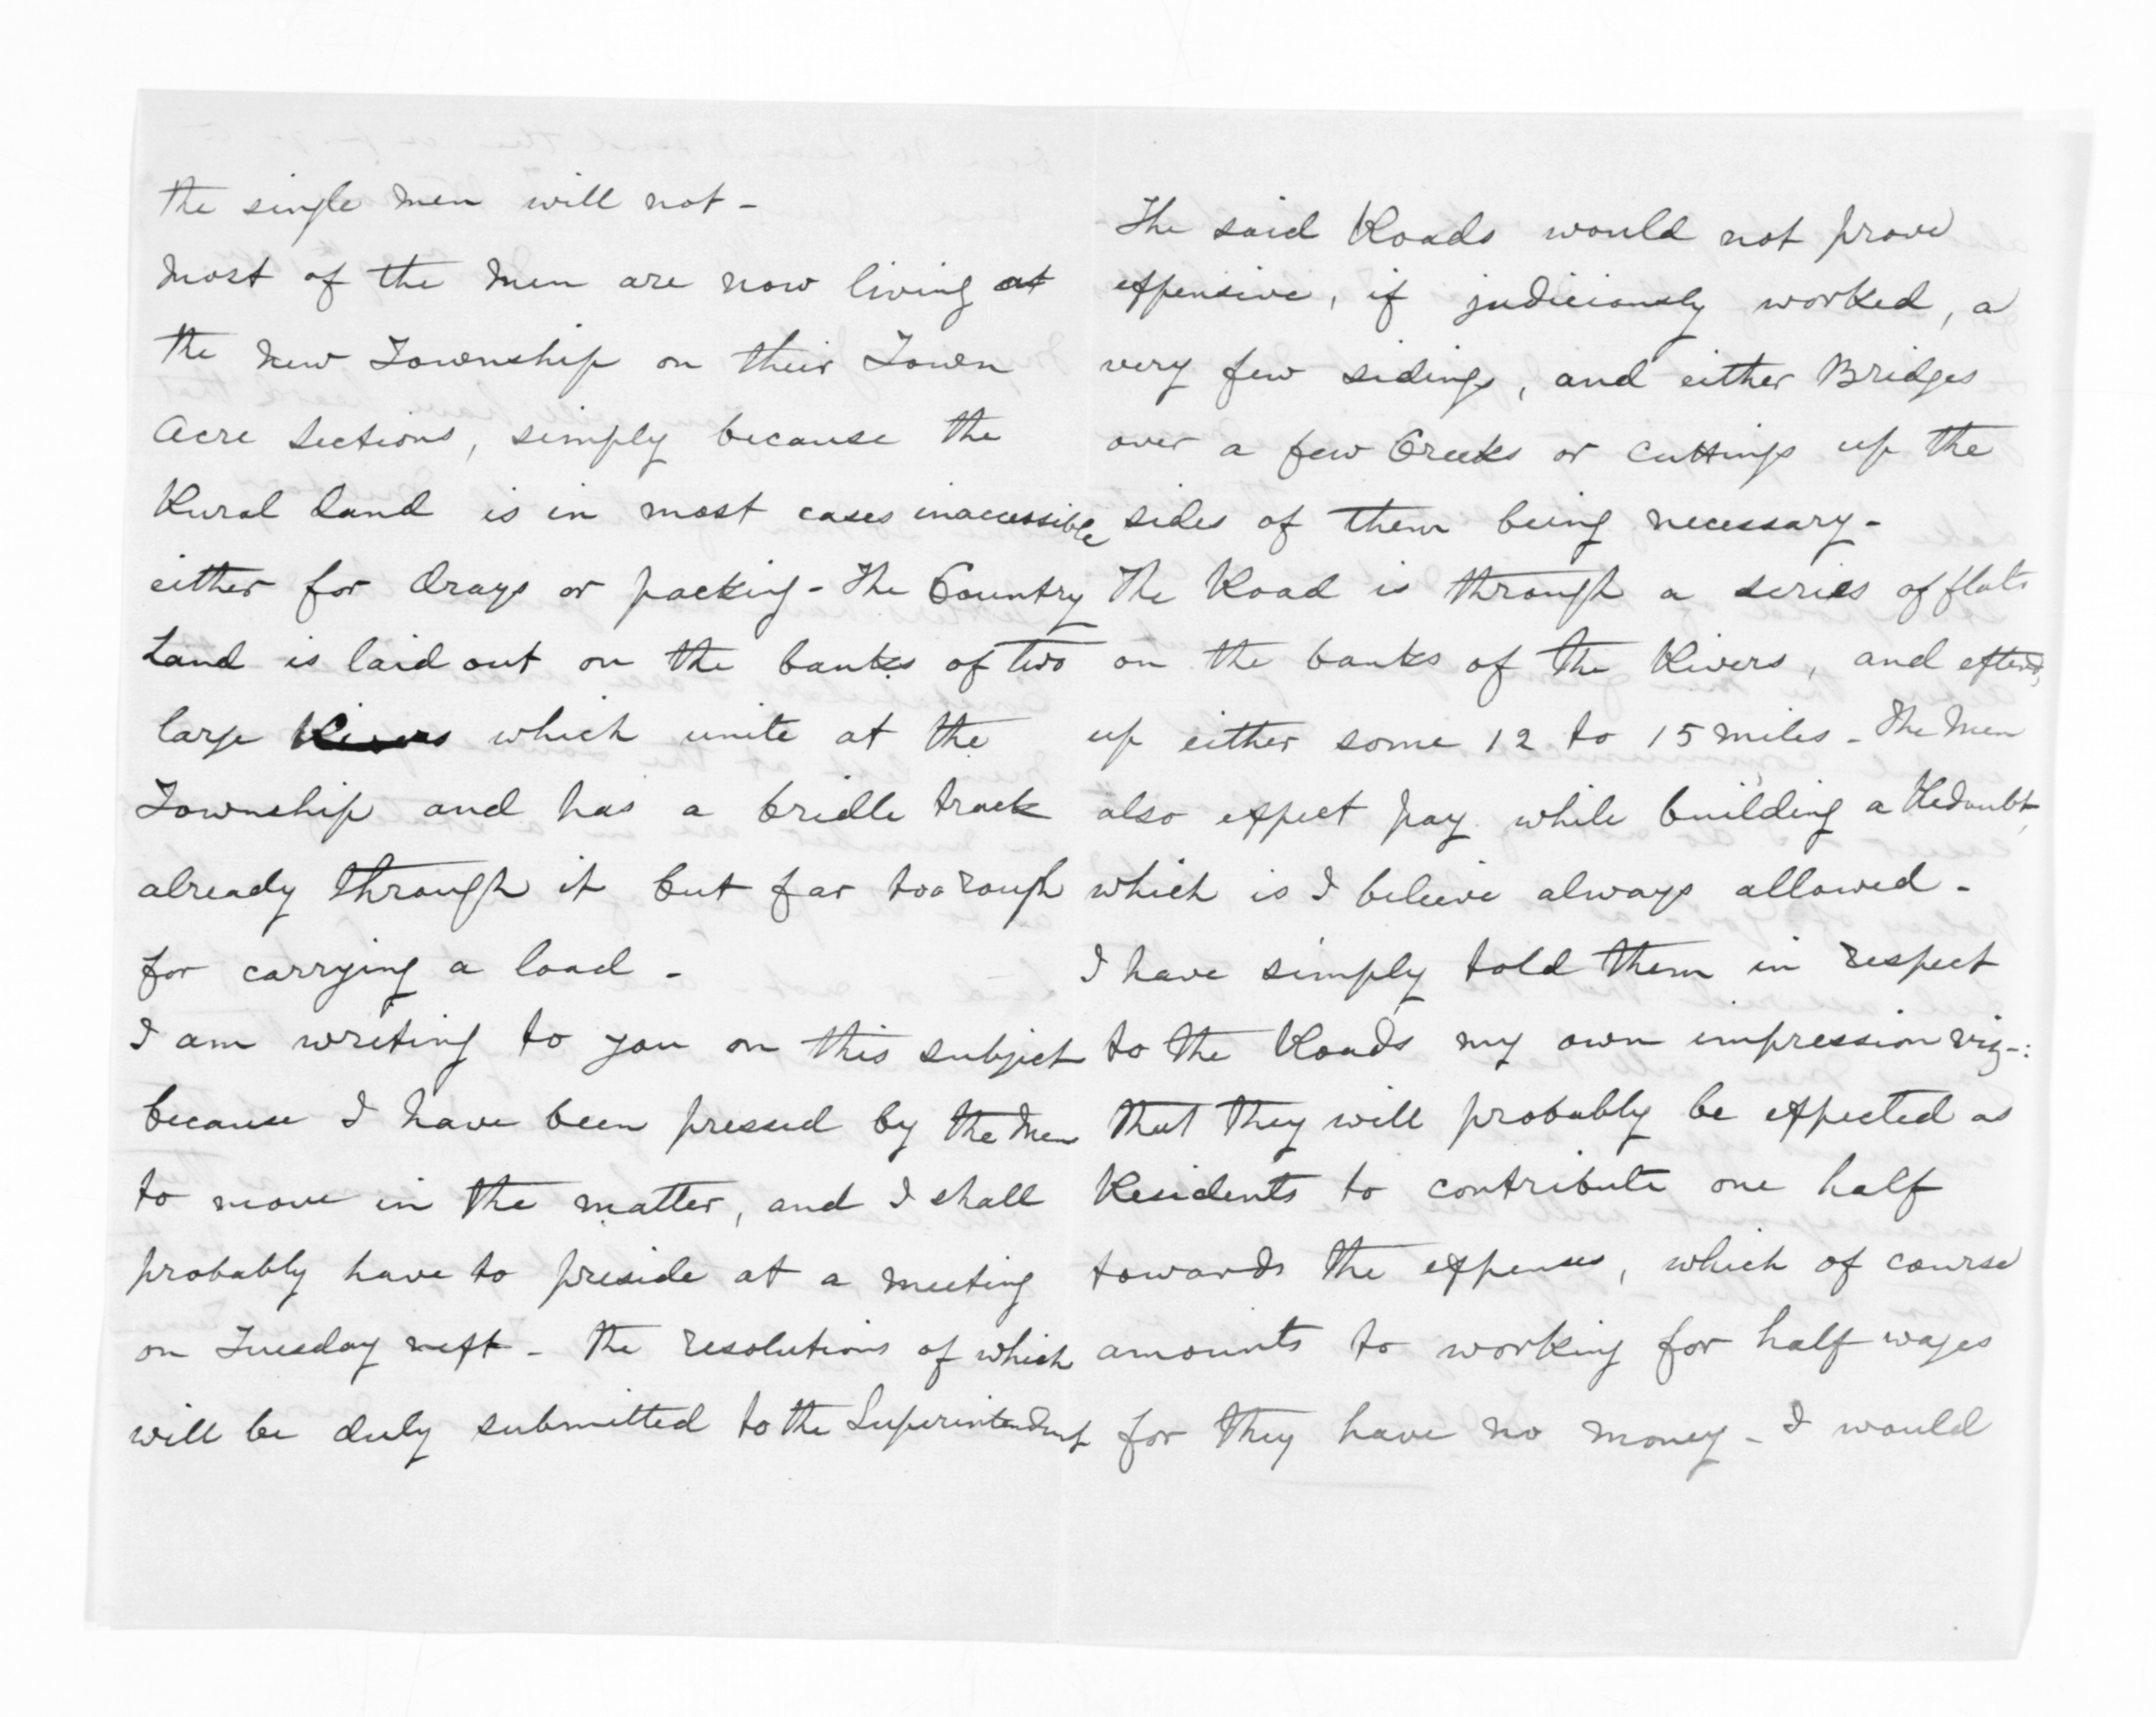 the single men will not -
Most of the Men are now living at
the New Township on their Town
Acre Sections, simply because the
Rural Land is in most cases inaccessible
either for Drays or packing - The Country
Land is laid out on the banks of two
large Rivers which unite at the
Township and has a bridle track
already through it but far too rough
for carrying a load -
I am writing to you on this subject
because I have been pressed by the Men
to move in the matter, and I shall
probably have to preside at a meeting
on Tuesday next - the resolutions of which
will be duly submitted to the Superintendent
The said Roads would not prove
expensive, if judiciously worked, a
very few sidings, and either Bridges
over a few Creeks or cuttings up the
sides of them being necessary -
The Road is through a series of flats
on the banks of the Rivers, and extends
up either some 12 to 15 miles - The Men
also expect pay while building a Redoubt,
which is I beleive always allowed -
I have simply told them in respect
to the Roads my own impression viz-:
that they will probably be expected as
Residents to contribute one half
towards the expenses, which of course
amounts to working for half wages
for they have no money - I would